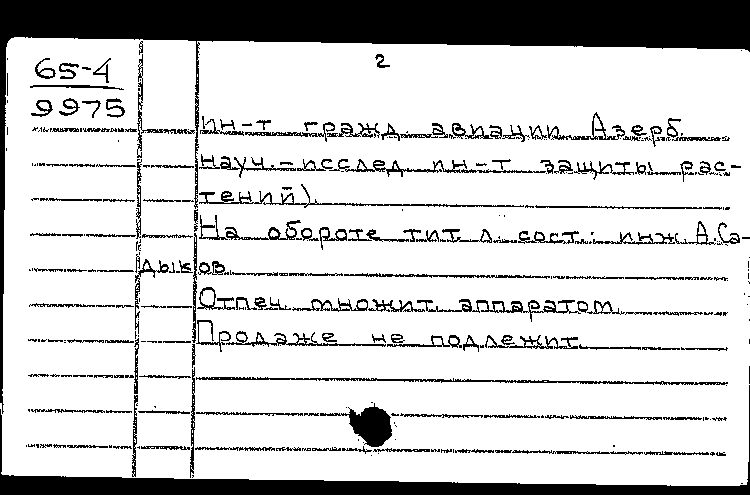 2
65-4
9975
ин-т гражд. авиации. Азерб.
науч.-исслед. ин-т защиты рас-
тений).
На обороте тит. л. сост.: инж. А. Са-
дыков.
Отпеч. множит. аппаратом.
Продаже не подлежит.